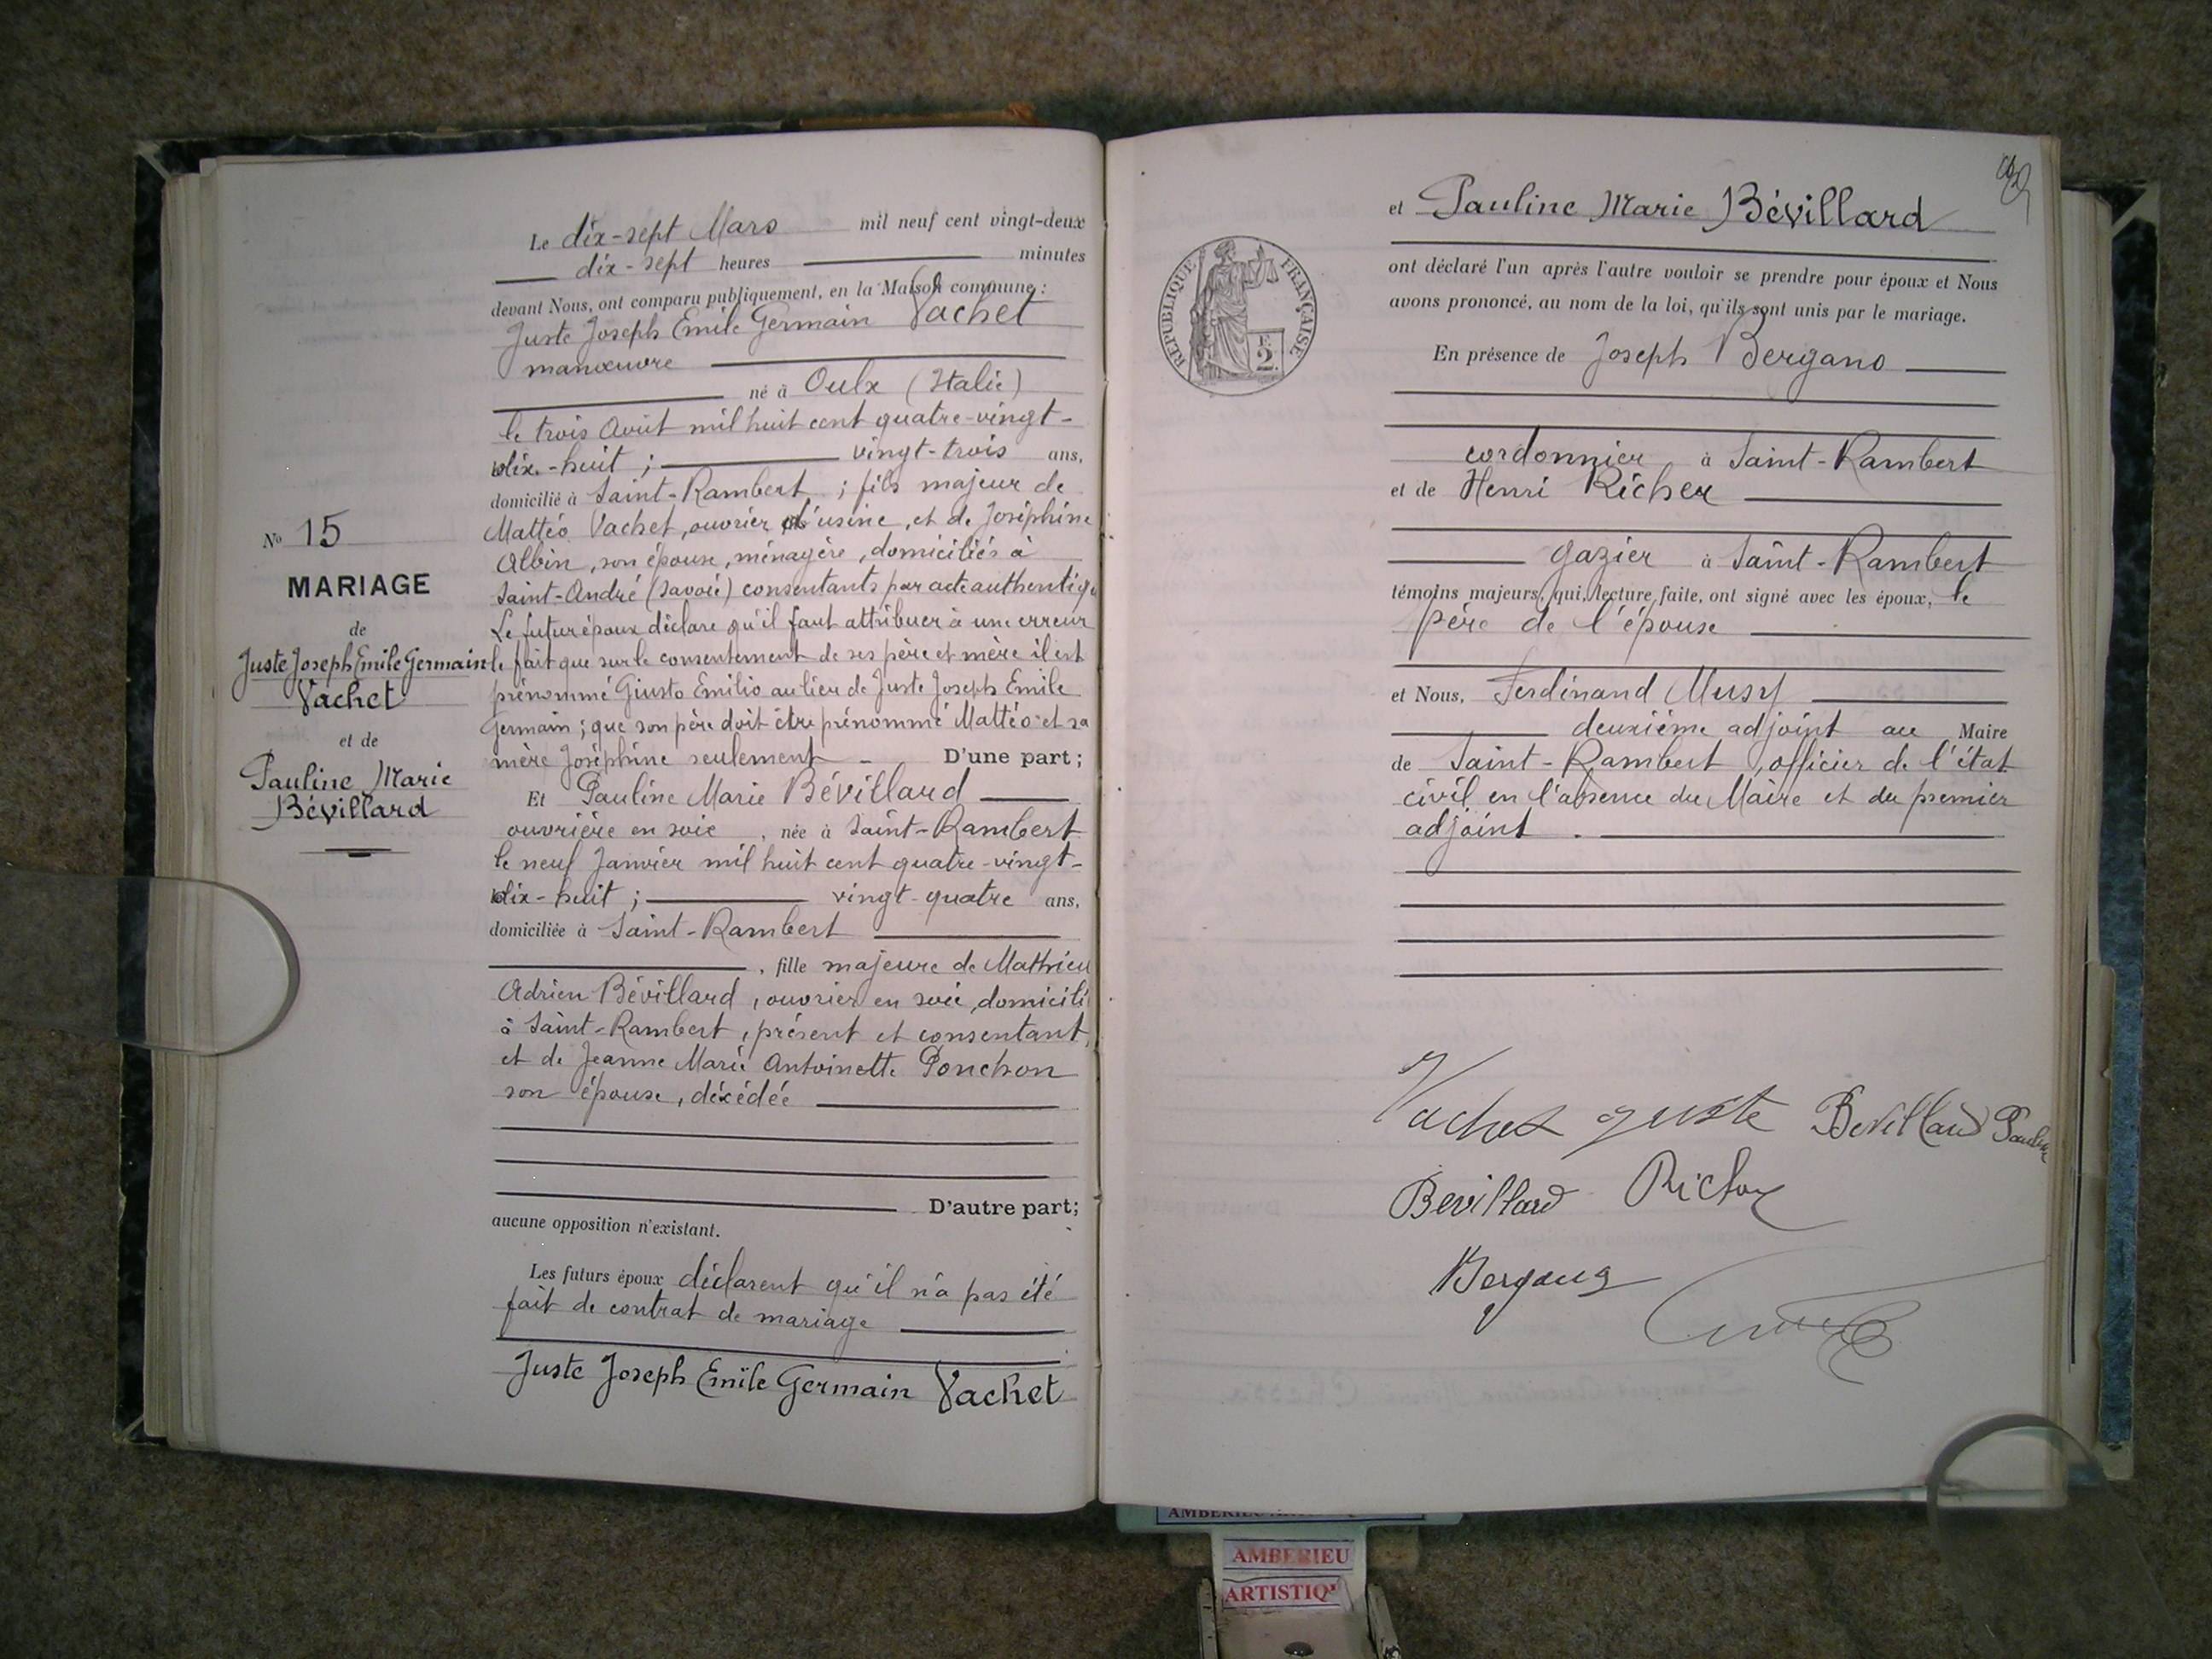 Le dix-sept Mars mil neuf cent vingt-deux
dix-sept heures minutes
devant Nous, ont comparu publiquement, en la Maison commune :
Juste Joseph Emile Germain Vachet
manœuvre
né à Oulx (Italie)
le trois Août mil huit cent quatre-vingt-
dix-huit ; vingt-trois ans,
domicilié à Saint-Rambert ; fils majeur de
Mattéo Vachet, ouvrier d'usine, et de Joséphine
Albin, son épouse, ménagère, domiciliés à
Saint-André (Savoie) consentants par acte authentiqu
Le futur époux déclare qu'il faut attribuer à une erreur
le fait que sur le consentement de ses père et mère il est
prénommé Giusto Emilio au lieu de Juste Joseph Emile
Germain ; que son père doit être prénommé Mattéo et sa
mère Joséphine seulement - D'une part ;
Et Pauline Marie Bévillard
ouvrière en soie, née à Saint-Rambert
le neuf Janvier mil huit cent quatre-vingt-
dix-huit ; vingt-quatre ans,
domiciliée à Saint-Rambert
, fille majeure de Mathieu
Adrien Bévillard, ouvrier en soie, domicilié
à Saint-Rambert, présent et consentant,
et de Jeanne Marie Antoinette Ponchon
son épouse, décédée
D'autre part;
aucune opposition n'existant.
Les futurs époux déclarent qu'il n'a pas été
fait de contrat de mariage
Juste Joseph Emile Germain Vachet
No 15
MARIAGE
de
Juste Joseph Emile Germain
Vachet
et de
Pauline Marie
Bévillard
et Pauline Marie Bévillard
ont déclaré l'un après l'autre vouloir se prendre pour époux et Nous
avons prononcé, au nom de la loi, qu'ils sont unis par le mariage.
RÉPUBLIQUE FRANÇAISE
F.
2.
En présence de Joseph Bergano
cordonnier à Saint-Rambert
et de Henri Richer
gazier à Saint-Rambert
témoins majeurs, qui, lecture faite, ont signé avec les époux, le
père de l'épouse
et Nous, Ferdinand Musy
deuxième adjoint au Maire
de Saint-Rambert, officier de l'état
civil en l'absence du Maire et du premier
adjoint.
Vachet Juste Bevillard Pauline
Bevillard Richer
Bergano
AMBERIEU
ARTISTIQ